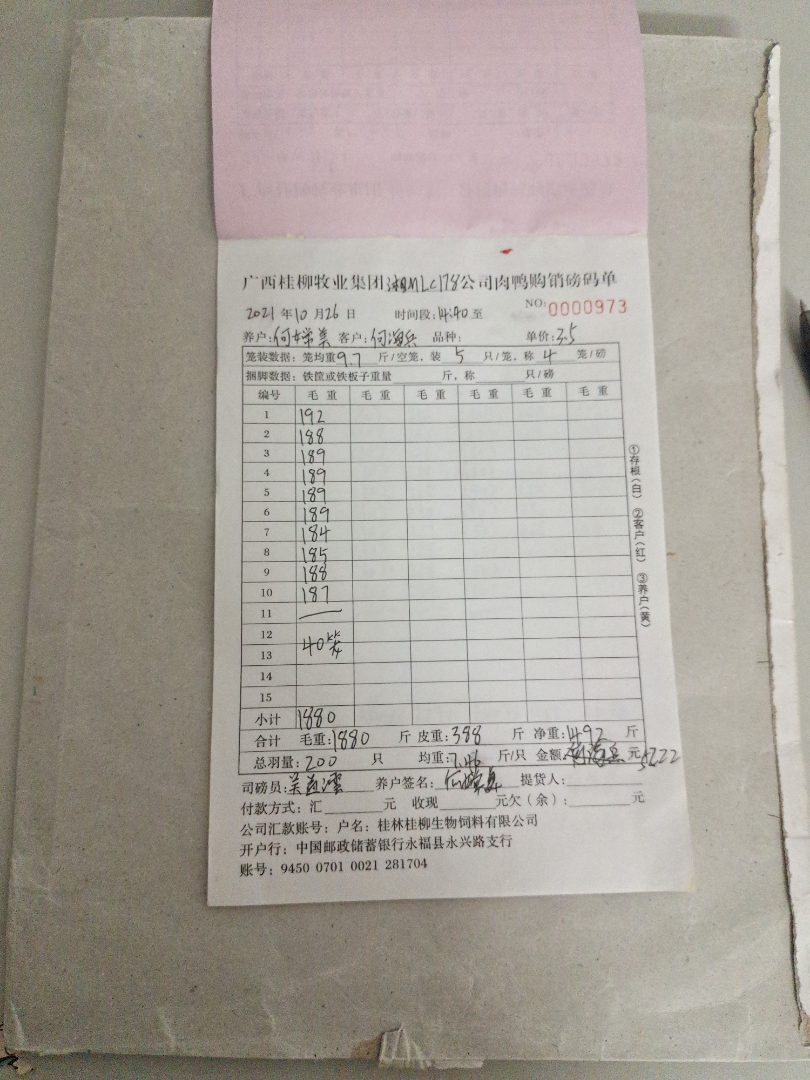 广西桂柳牧业集团湘BMLC178公司肉鸭购销磅码单
2021年10月26日 时间段:14:40至 NO:0000973
养户:何嫦美 客户:何海兵 品种: 单价:3.5
笼装数据:笼均重9.7斤/空笼,装5只/笼,称4笼/磅
捆脚数据:铁筐或铁板子重量 斤,称 只/磅
编号 毛重 毛重 毛重 毛重 毛重 毛重
1 192
2 188
3 189
4 189
5 189
6 189
7 184
8 185
9 188
10 187
11 —
12
13 40笼
14
15
小计 1880
合计 毛重:1880斤 皮重:388斤 净重:1492斤
总羽量:200只 均重:7.46斤/只 金额 何海兵 元 5222
司磅员: 养户签名:何嫦美 提货人:
付款方式:汇 元 收现 元欠(余): 元
公司汇款账号:户名:桂林桂柳生物饲料有限公司
开户行:中国邮政储蓄银行永福县永兴路支行
账号:9450 0701 0021 281704
①存根(白) ②客户(红) ③养户(黄)